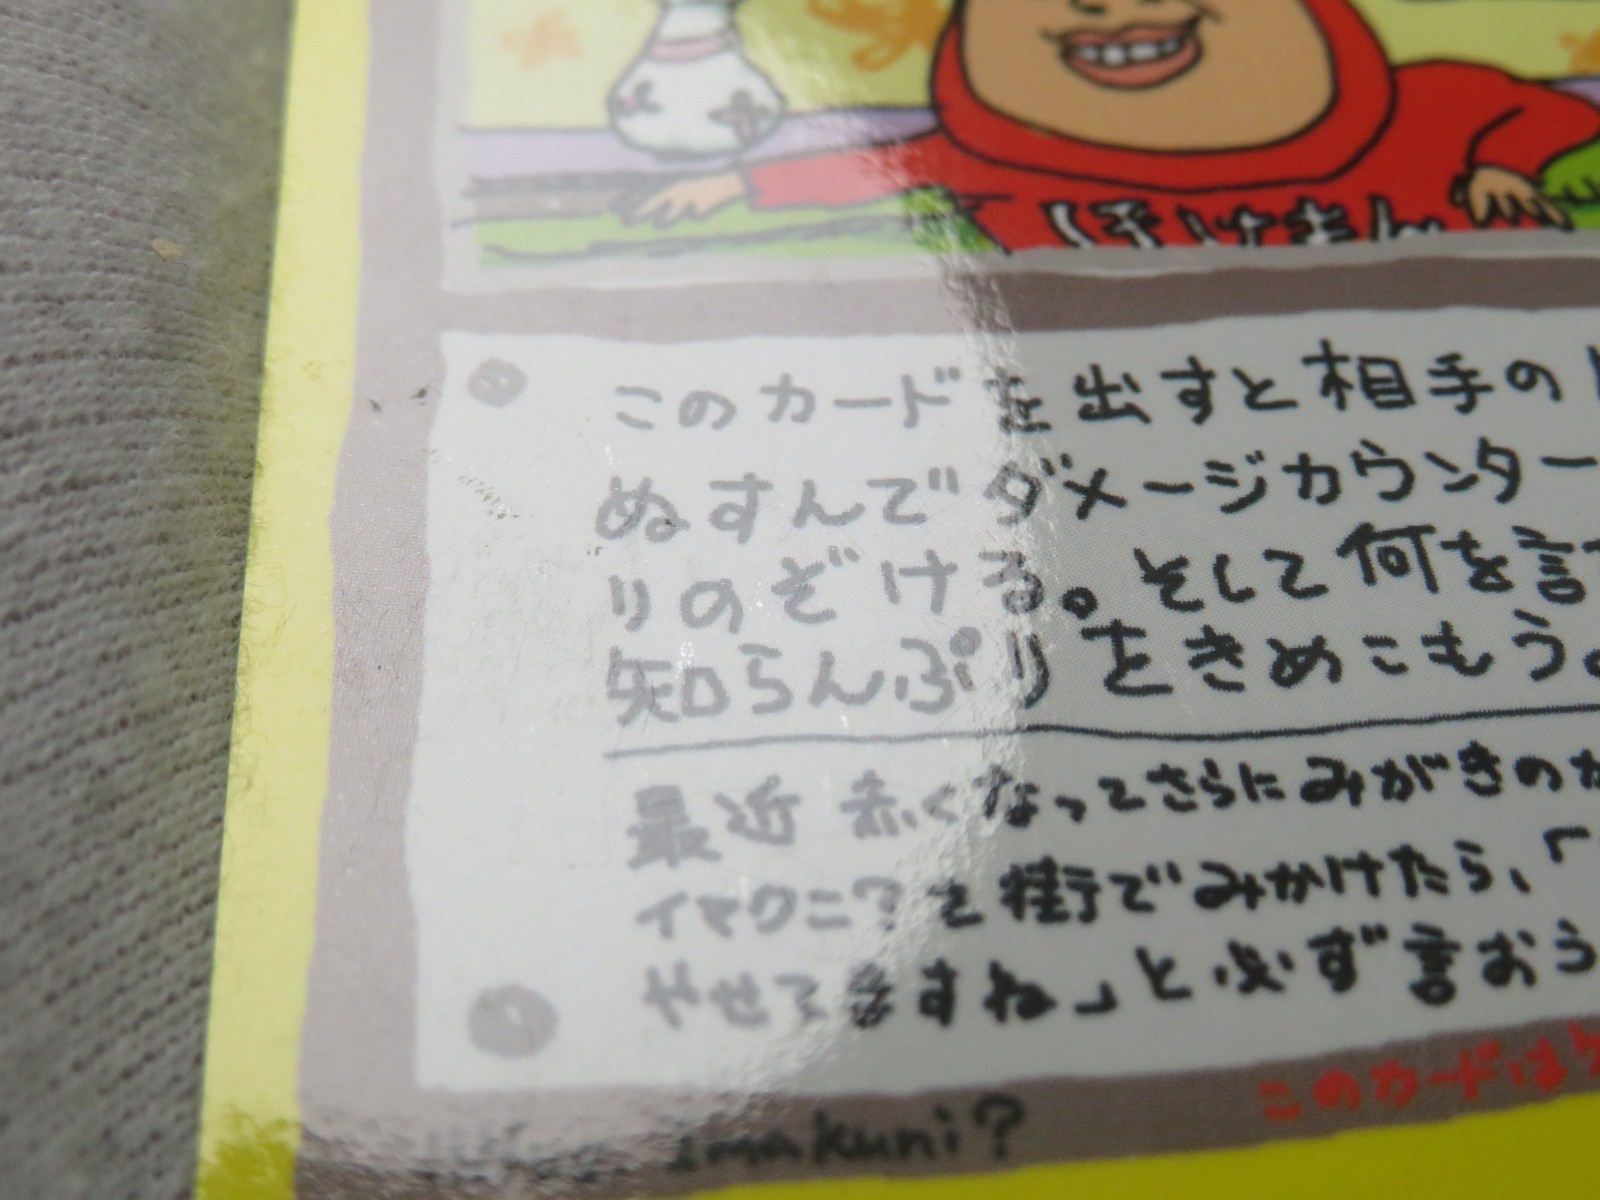 ほけまん
このカードを出すと相手の
ぬすんでダメージカウンター
りのぞける。そして何を言
知らんぷりをきめこもう。
最近赤くなってさらにみがきのか
イマクニ?を街でみかけたら、「
やせてますね」と必ず言おう
このカードは
imakuni?